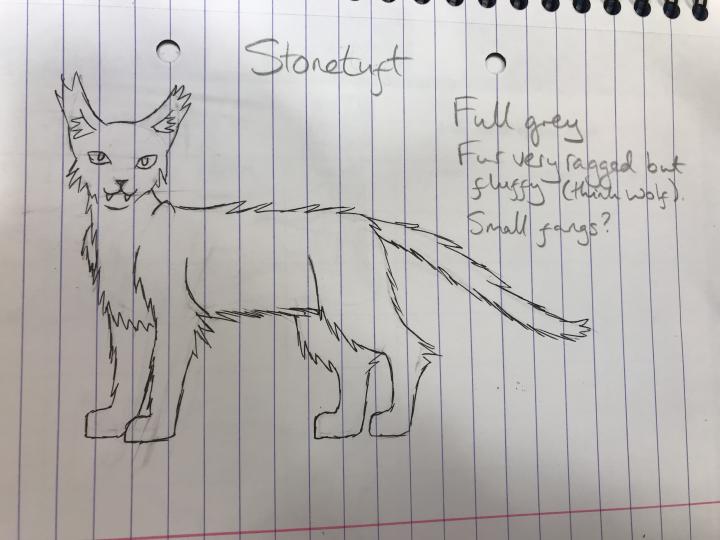 Stonetuft
Full grey
Fur very ragged but
fluffy (think wolf).
Small fangs?